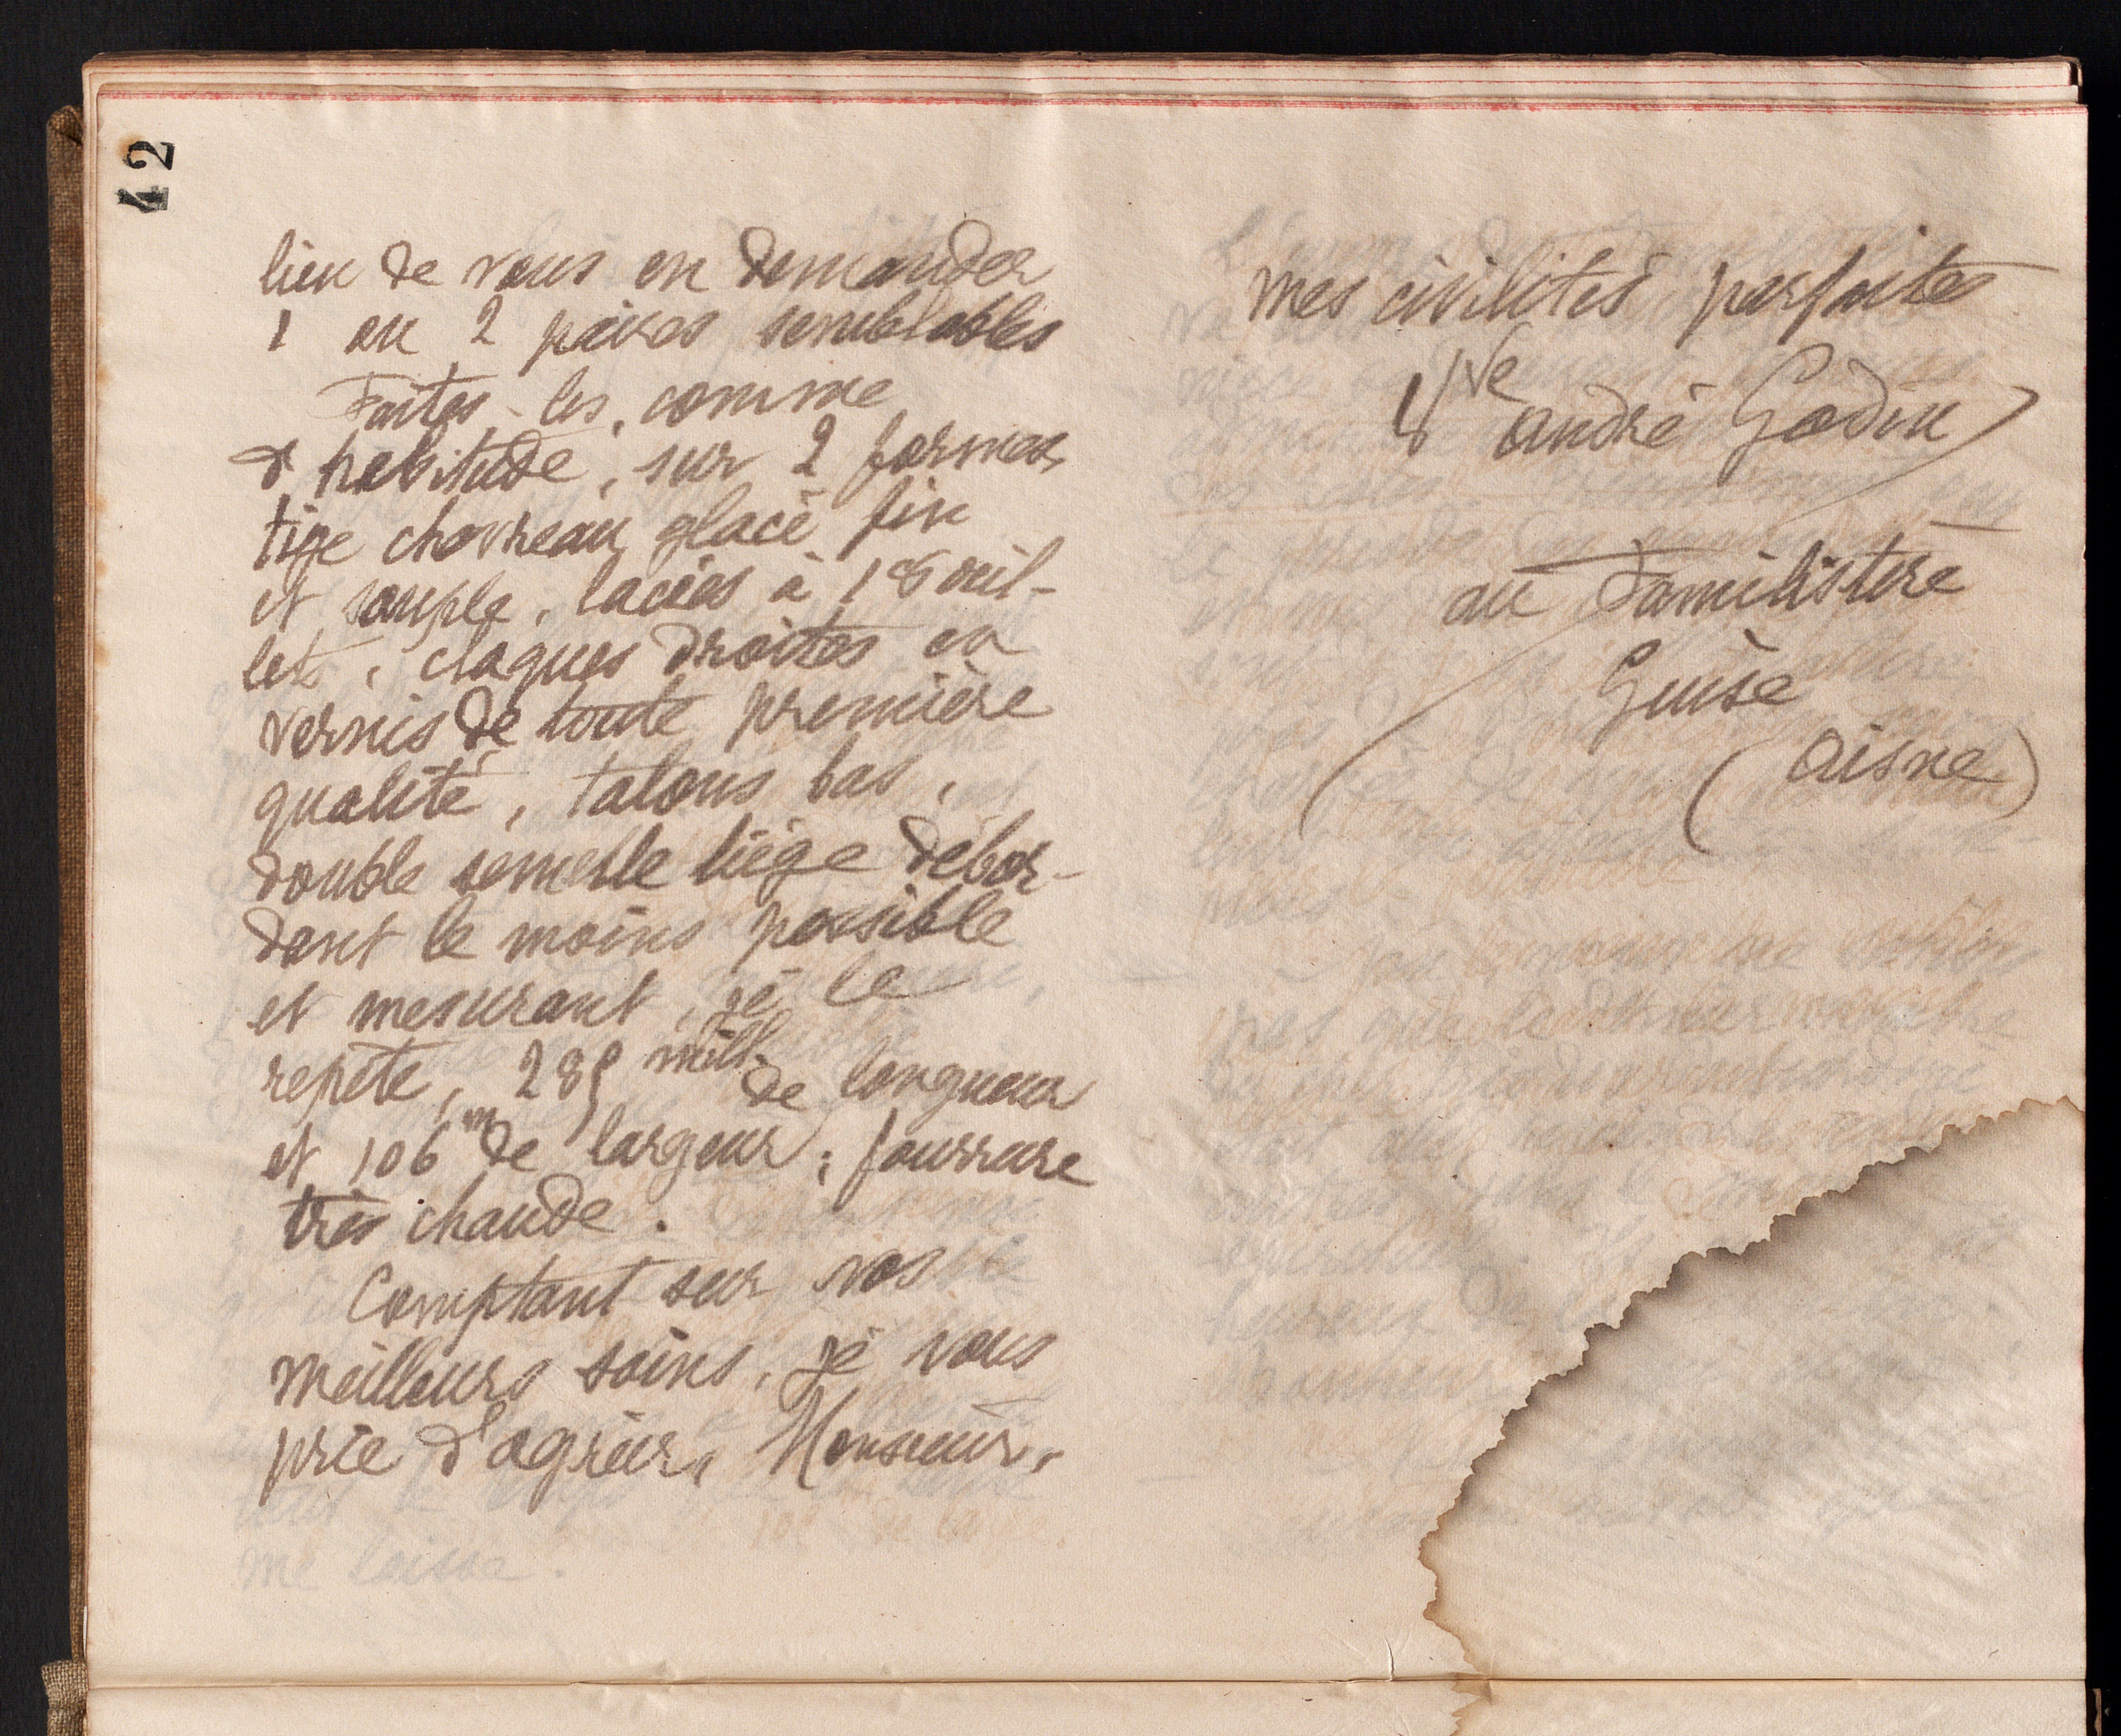 42
lieu de vous en demander
1 ou 2 paires semblables
Faites-les, comme
d'habitude, sur 2 formes,
tige chevreau glacé fin
et souple, lacées à 18 œil-
lets, claques droites en
vernis de toute première
qualité, talons bas,
double semelle liège débor-
dant le moins possible
et mesurant, je le
repète, 285 mill. de longueur
et 106 m de largeur; fourrure
très chaude.
Comptant sur vos
meilleurs soins, je vous
prie d'agréer, Monsieur,
mes civilités parfaites
Vve André Godin
au Familistère
Guise
(Aisne)